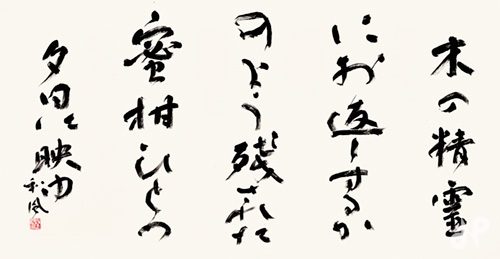 木の精靈
にお返しするか
のよう残された
蜜柑ひとつ
夕日に映ゆ